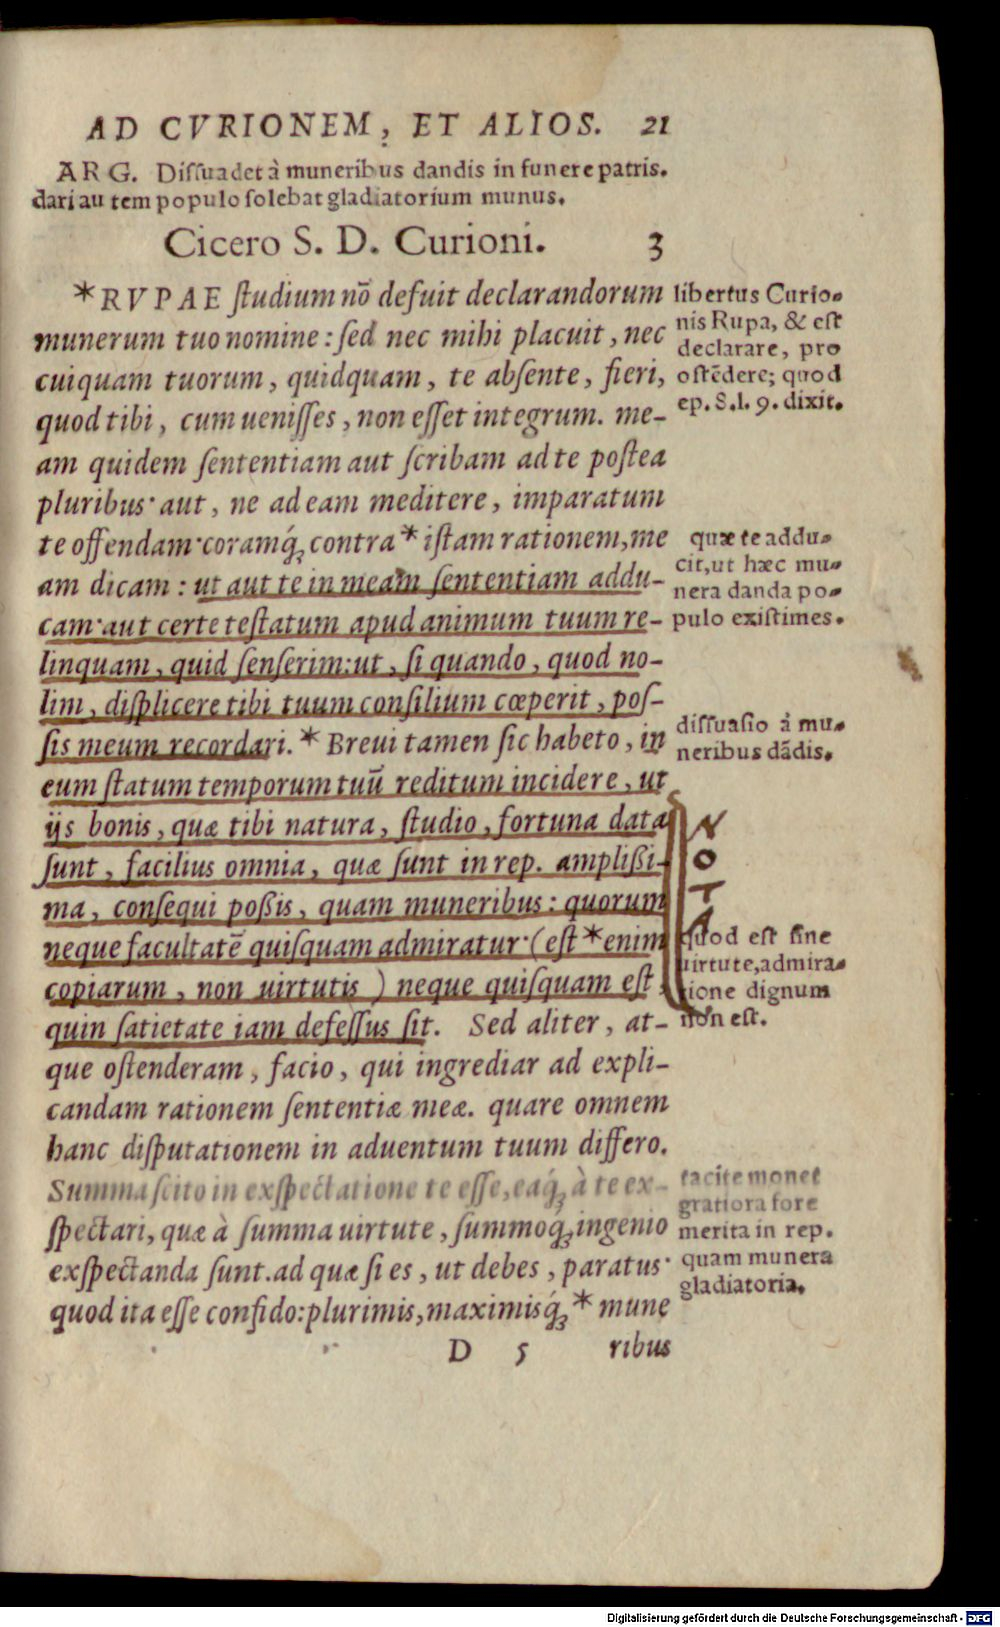 AD CVRIONEM, ET ALIOS. 21
ARG. Dissuadet à muneribus dandis in funere patris.
dari autem populo solebat gladiatorium munus.
Cicero S. D. Curioni. 3
*RVPAE studium nō defuit declarandorum
munerum tuo nomine: sed nec mihi placuit, nec
cuiquam tuorum, quidquam, te absente, fieri,
quod tibi, cum uenisses, non esset integrum. me-
am quidem sententiam aut scribam ad te postea
pluribus· aut, ne ad eam meditere, imparatum
te offendam· coramq́; contra * istam rationem, me
am dicam: ut aut te in meam sententiam addu-
cam· aut certe testatum apud animum tuum re-
linquam, quid senserim: ut, si quando, quod no-
lim, displicere tibi tuum consilium cœperit, pos-
sis meum recordari. * Breui tamen sic habeto, in
eum statum temporum tuū reditum incidere, ut
ijs bonis, quæ tibi natura, studio, fortuna data
sunt, facilius omnia, quæ sunt in rep. amplißi-
ma, consequi poßis, quam muneribus: quorum
neque facultatē quisquam admiratur· (est * enim
copiarum, non uirtutis) neque quisquam est,
quin satietate iam defessus sit. Sed aliter, at-
que ostenderam, facio, qui ingrediar ad expli-
candam rationem sententiæ meæ. quare omnem
hanc disputationem in aduentum tuum differo.
Summa scito in exspectatione te esse, eaq́; à te ex-
spectari, quæ à summa uirtute, summoq́; ingenio
exspectanda sunt. ad quæ si es, ut debes, paratus·
quod ita esse confido: plurimis, maximisq́; * mune
D 5 ribus
libertus Curio-
nis Rupa, & est
declarare, pro
ostēdere; quod
ep. 8. l. 9. dixit.
quæ te addu-
cit, ut hæc mu-
nera danda po-
pulo existimes.
dissuasio à mu-
neribus dādis.
NOTA
quod est sine
uirtute, admira-
tione dignum
non est.
tacite monet
gratiora fore
merita in rep.
quam munera
gladiatoria.
Digitalisierung gefördert durch die Deutsche Forschungsgemeinschaft - DFG